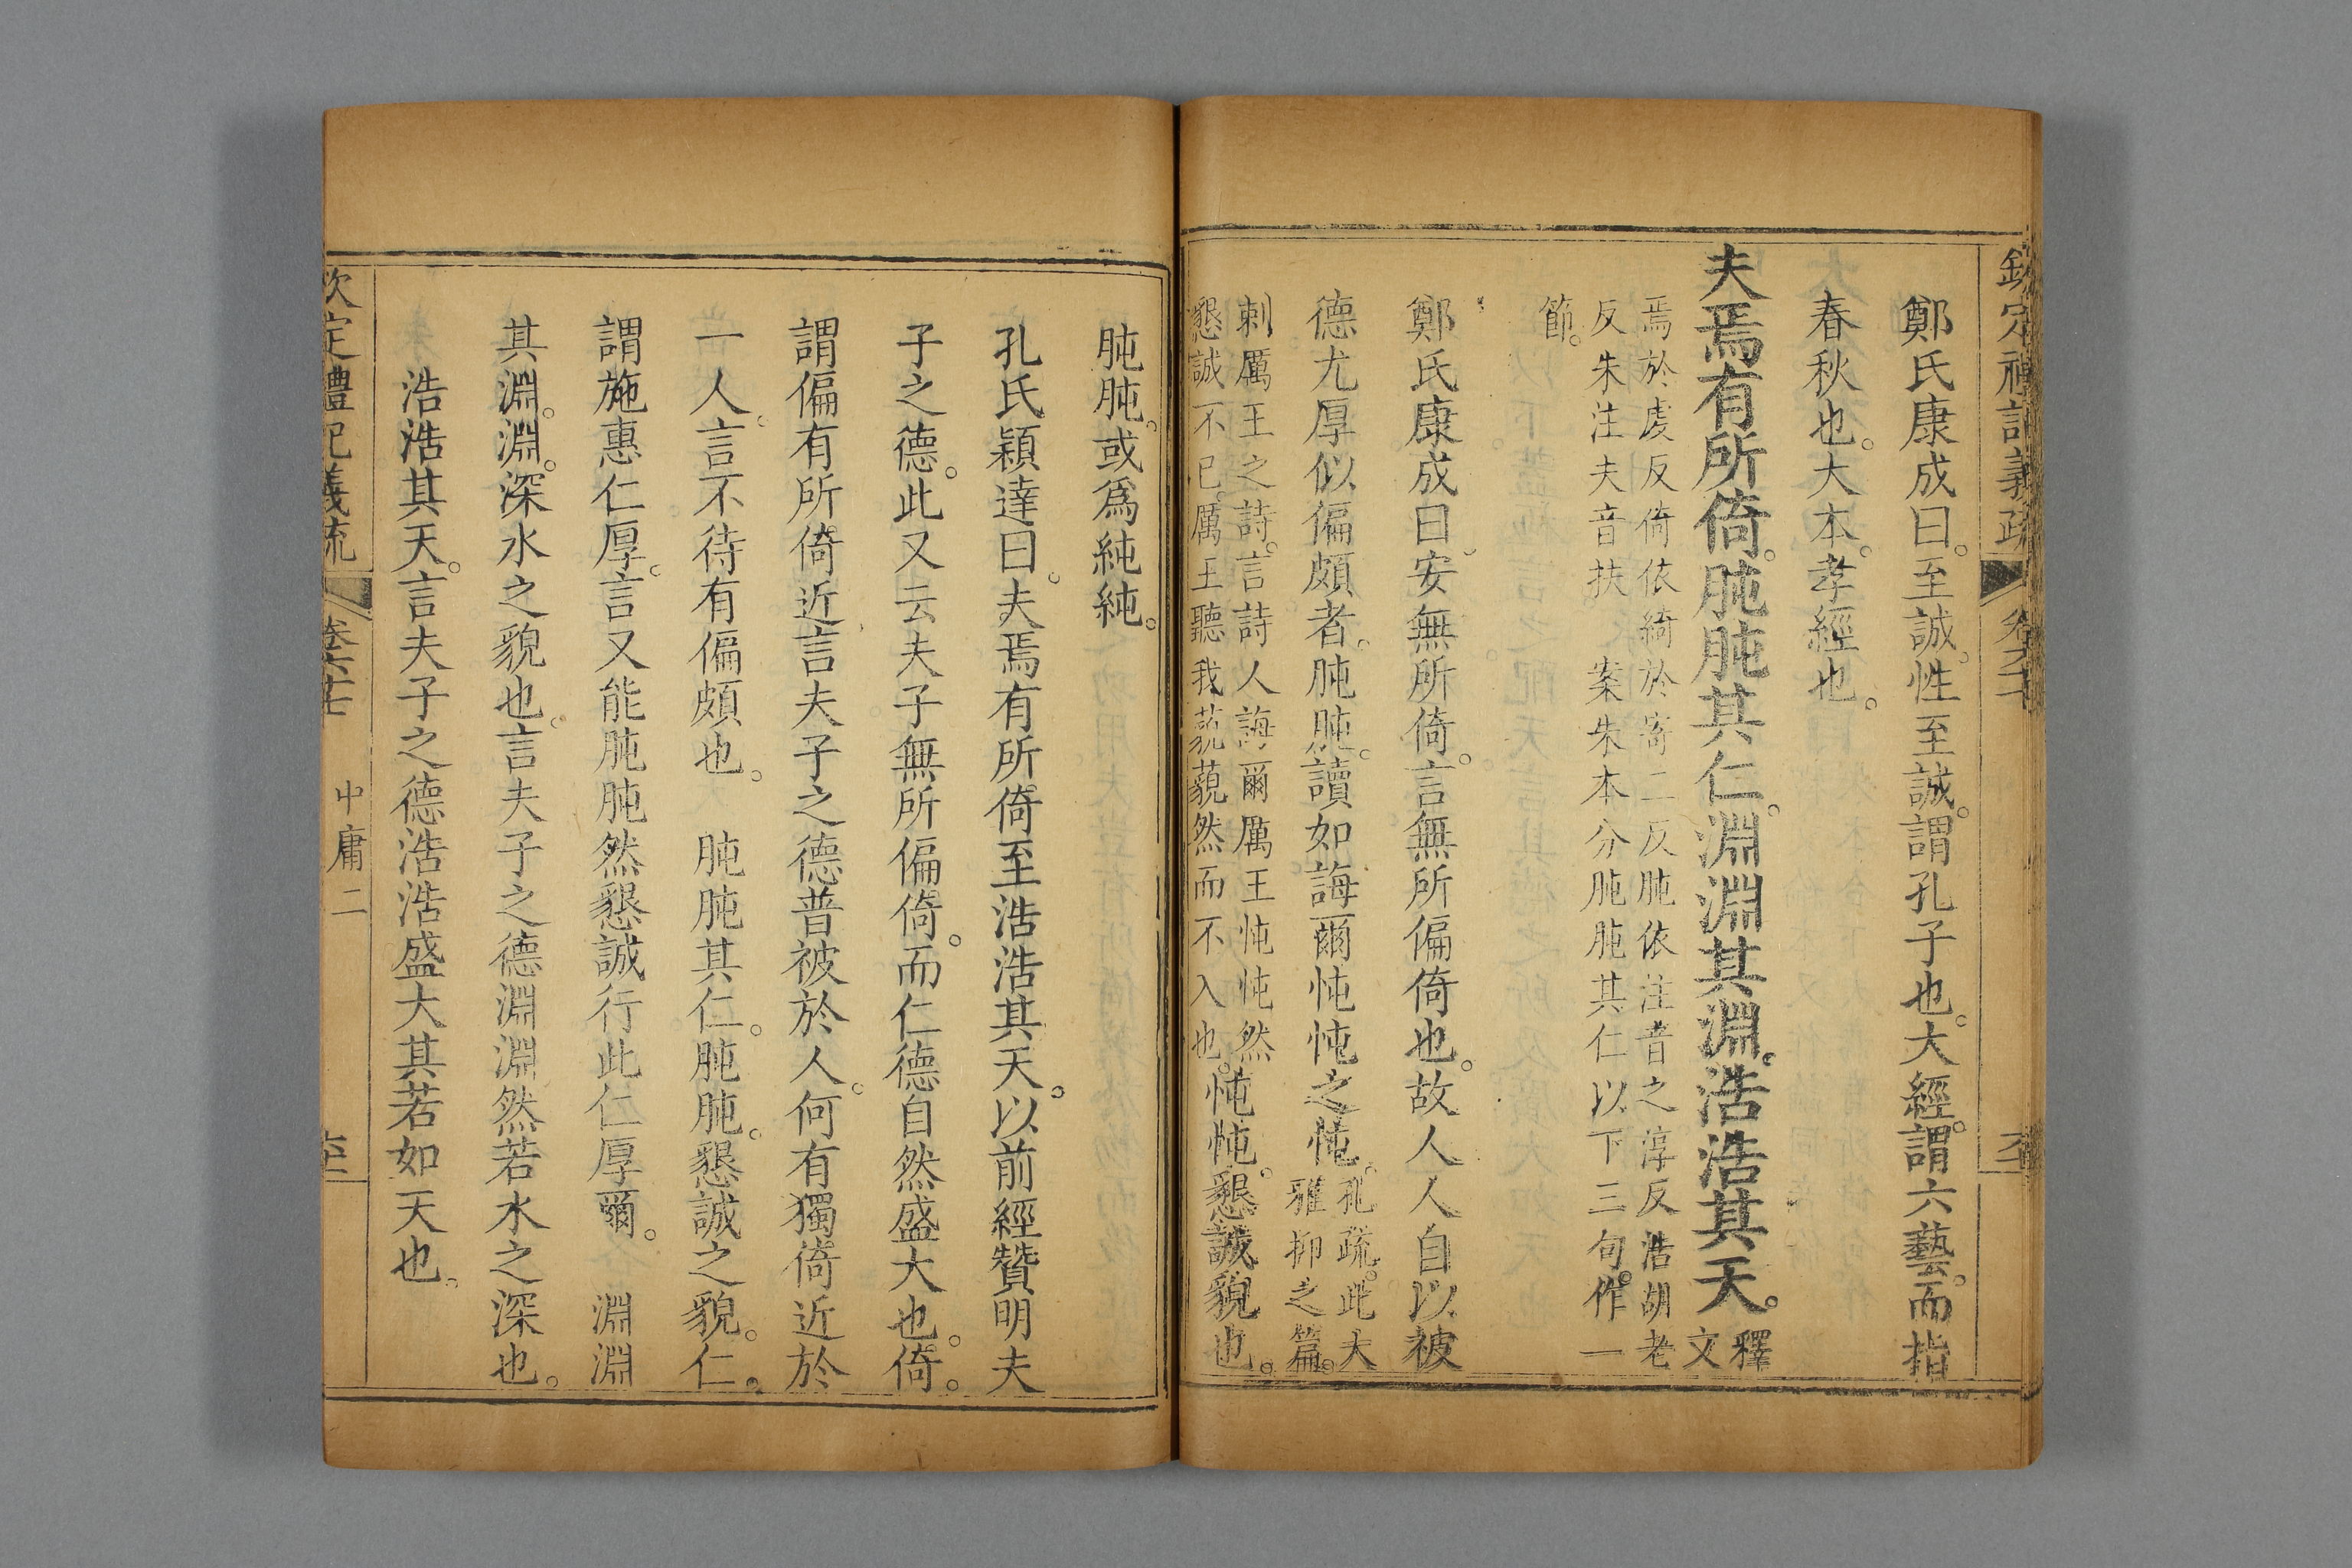 鄭氏康成曰。至誠。性至誠。謂孔子也。大經。謂六藝。而指
春秋也。大本。孝經也。
夫焉有所倚。肫肫其仁。淵淵其淵。浩浩其天。釋文
焉於虔反倚依綺於寄二反肫依注音之淳反浩胡老
反朱注夫音扶 案朱本分肫肫其仁以下三句。作一
節。
鄭氏康成曰安無所倚。言無所偏倚也。故人人自以被
德尤厚似偏頗者。肫肫。讀如誨爾忳忳之忳。孔疏。此大雅抑之篇。
刺厲王之詩。言詩人誨爾厲王忳忳然
懇誠不已。厲王聽我藐藐然而不入也。忳忳。懇誠貌也。
肫肫。或爲純純。
孔氏穎達曰。夫焉有所倚至浩浩其天。以前經贊明夫
子之德。此又云夫子無所偏倚。而仁德自然盛大也。倚。
謂偏有所倚近言夫子之德普被於人。何有獨倚近於
一人。言不待有偏頗也。 肫肫其仁。肫肫。懇誠之貌。仁。
謂施惠仁厚。言又能肫肫然懇誠行此仁厚爾。 淵淵
其淵。淵。深水之貌也。言夫子之德淵淵然若水之深也。
浩浩其天。言夫子之德浩浩盛大其若如天也。
欽定禮記義疏 中庸二